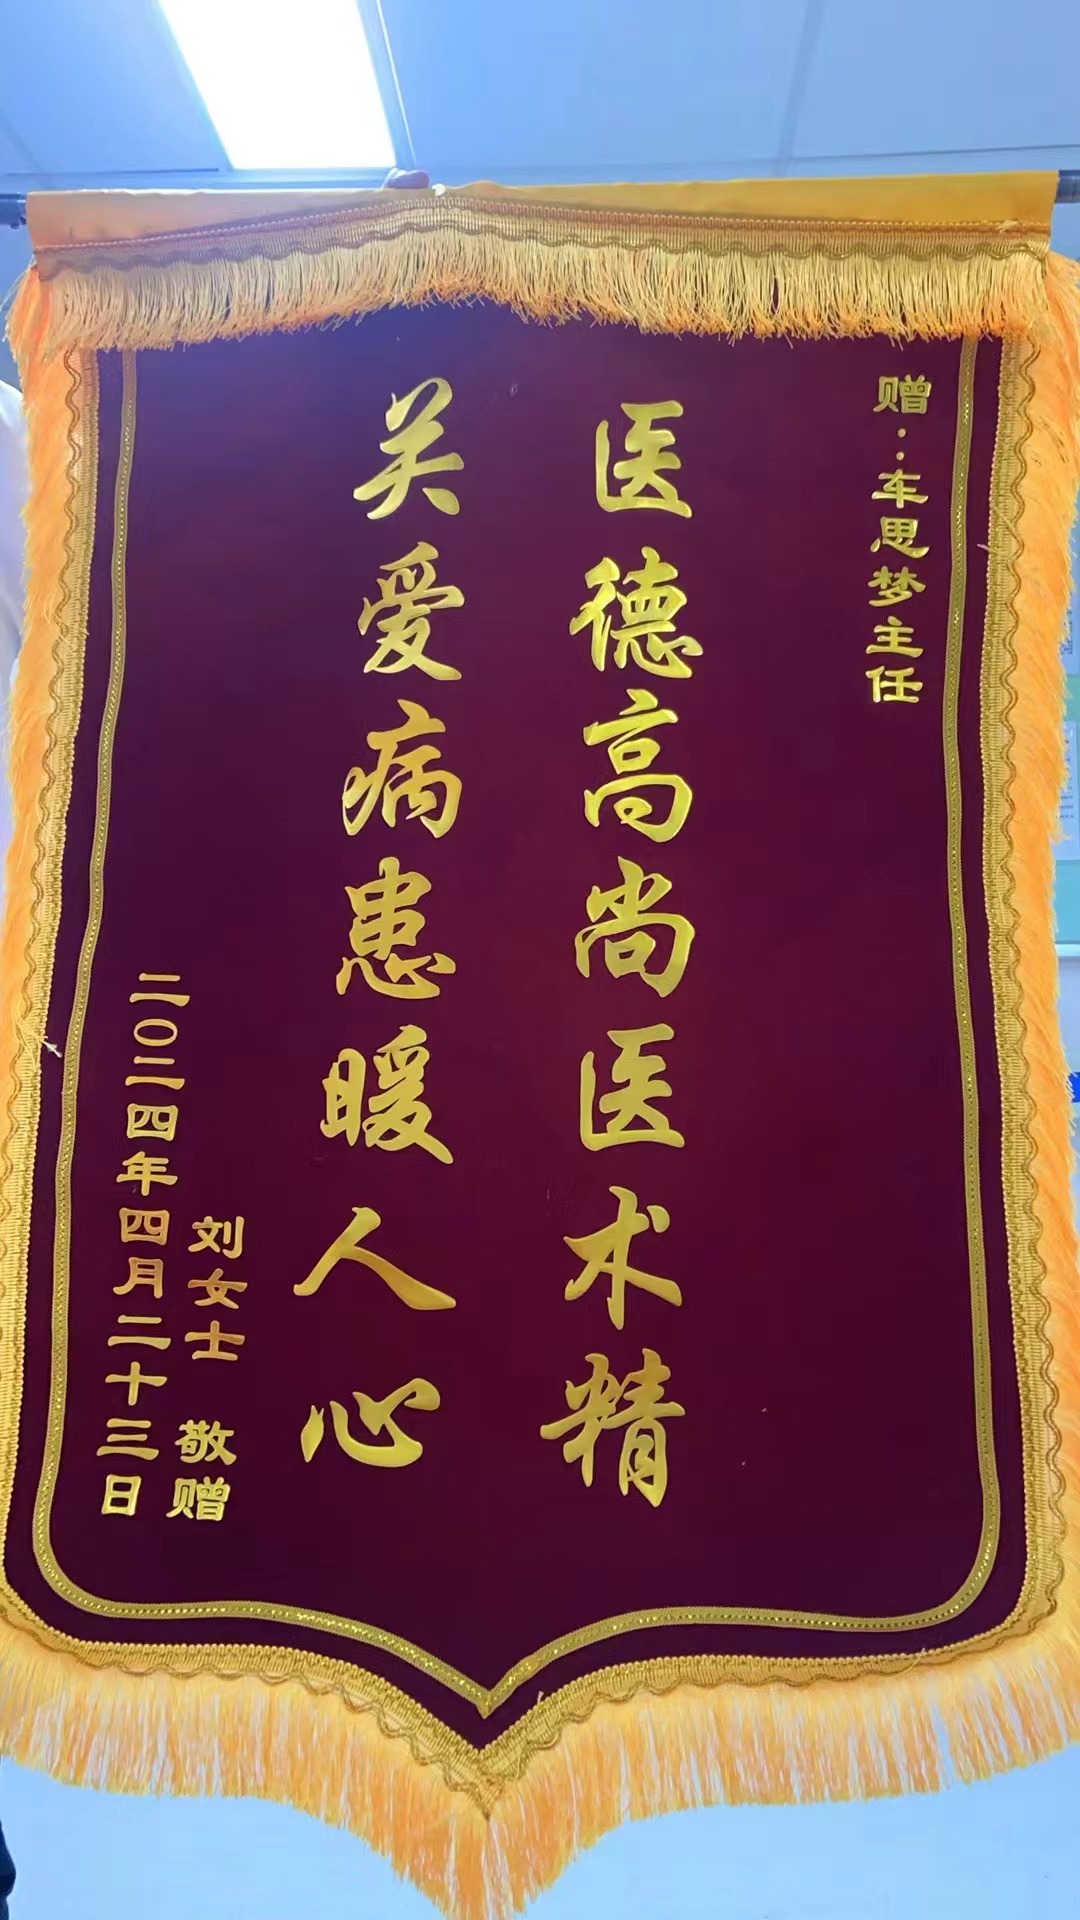 赠：车思梦主任
医德高尚医术精
关爱病患暖人心
刘女士 敬赠
二〇二四年四月二十三日